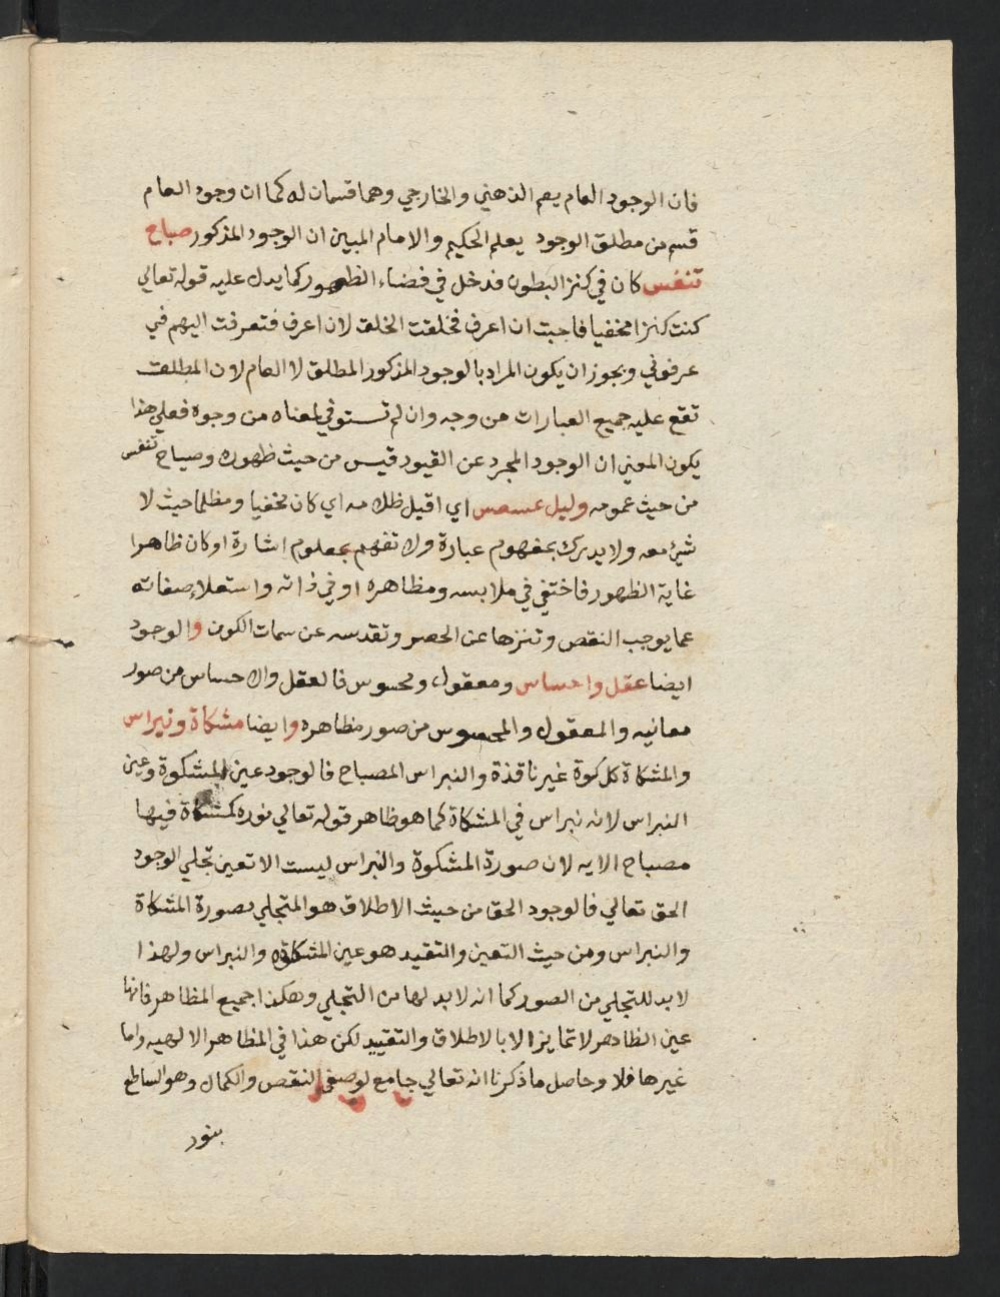 فان الوجود العام يعم الذهني والخارجي وهما قسمان له كما ان وجود العام
قسم من مطلق الوجود يعلم الحكيم والامام المبين ان الوجود المذكور صباح
تنفس كان في كنز البطون فدخل في فضاء الظهور كما يدل عليه قوله تعالي
كنت كنزا مخفيا فاحببت ان اعرف فخلقت الخلق لان اعرف فتعرفت اليهم في
عرفوني ويجوز ان يكون المراد بالوجود المذكور المطلق لا العام لان المطلق
تقع عليه جميع العبارات من وجه وان لم تستوفي لمعناه من وجوه فعلي هذا
يكون المعني ان الوجود المجرد عن القيود قيس من حيث ظهوره وصباح تنفس
من حيث عمومه وليل عسعس اي اقبل ظلامه اي كان مخفيا ومظلما حيث لا
شئ معه ولا يدرك بمفهوم عبارة ولا تفهم بمعلوم اشارة او كان ظاهرا
غاية الظهور فاختفي في ملابسه ومظاهره او في ذاته واستعلاء صفاته
عما يوجب النقص وتنزها عن الحصر وتقدسه عن سمات الكون والوجود
ايضا عقل واحساس ومعقول ومحسوس فالعقل والاحساس من صور
معانيه والمعقول والمحسوس من صور مظاهره وايضا مشكاة ونبراس
والمشكاة كل كوة غير نافذة والنبراس المصباح فالوجود عين المشكوة وعين
النبراس لانه نبراس في المشكاة كما هو ظاهر قوله تعالي نوره كمشكاة فيها
مصباح الايه لان صورة المشكوة والنبراس ليست الا تعين تجلي الوجود
الحق تعالي فالوجود الحق من حيث الاطلاق هو المتجلي بصورة المشكاة
والنبراس ومن حيث التعين والتقيد هو عين المشكاة والنبراس ولهذا
لا بد للتجلي من الصور كما انه لا بد لها من التجلي وهكذا جميع المظاهر فانها
عين الظاهر لا تمايز الا بالاطلاق والتقييد لكن هذا في المظاهر الالهيه واما
غيرها فلا وحاصل ما ذكرنا انه تعالي جامع لوصفي النقص والكمال وهو الساطع
بنور